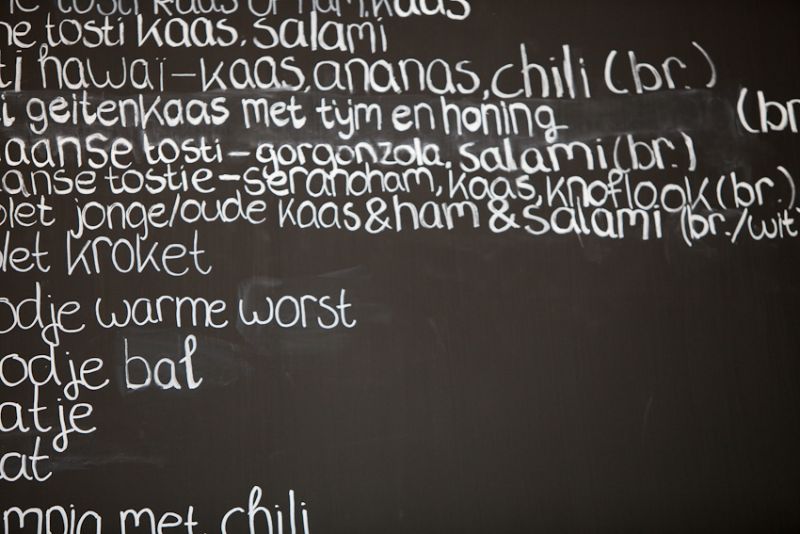 tosti kaas of ham, kaas
ne tosti kaas, salami
ti hawaï-kaas, ananas, chili (br.)
ti geitenkaas met tijm en honing (br
aanse tosti-gorgonzola, salami (br.)
aanse tostie-seranoham, kaas, knoflook (br.)
olet jonge/oude kaas & ham & salami (br./wit
olet kroket
odje warme worst
oodje bal
atje
at
mpia met chili